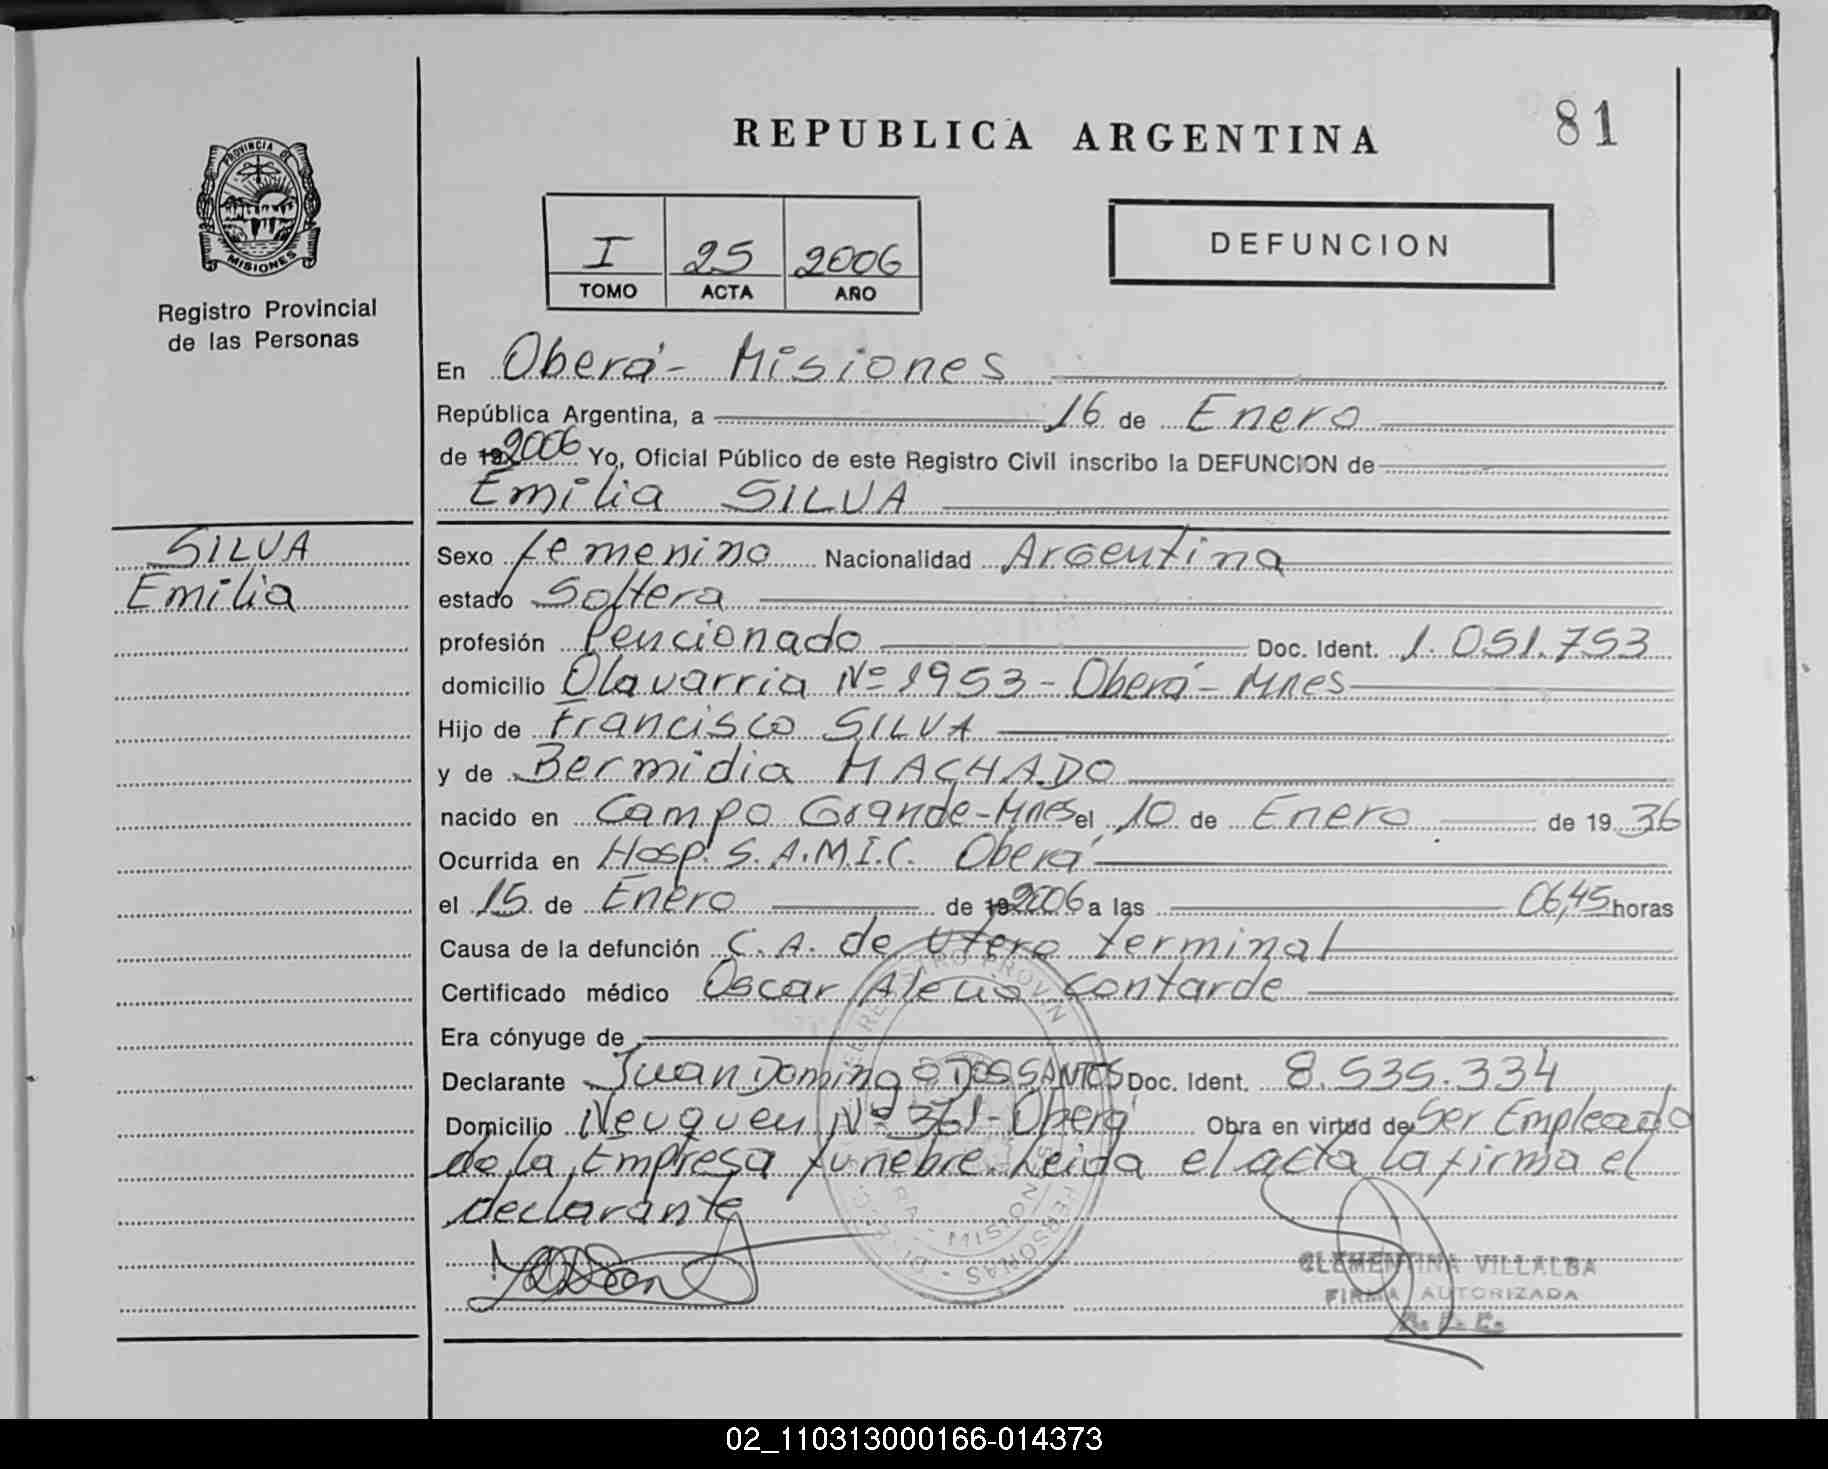 REPUBLICA ARGENTINA
81
PROVINCIA DE
MISIONES
Registro Provincial
de las Personas
I 25 2006
TOMO ACTA AÑO
DEFUNCION
En Oberá - Misiones
República Argentina, a 16 de Enero
de 19 2006 Yo, Oficial Público de este Registro Civil inscribo la DEFUNCION de
Emilia SILVA
SILVA
Emilia
Sexo femenino Nacionalidad Argentina
estado Soltera
profesión Pencionado Doc. Ident. 1.051.753
domicilio Olavarria Nº 1953 - Oberá - Mnes
Hijo de Francisco SILVA
y de Bermidia MACHADO
nacido en Campo Grande - Mnes el 10 de Enero de 19 36
Ocurrida en Hosp. S.A.M.I.C. Oberá
el 15 de Enero de 19 2006 a las 06,45 horas
Causa de la defunción C.A. de Utero terminal
Certificado médico Oscar Contarde
Era cónyuge de
Declarante Juan Domingo DOS SANTOS Doc. Ident. 8.535.334
Domicilio Neuquen Nº 361 - Oberá Obra en virtud de Ser Empleado
de la Empresa funebre. Leida el acta la firma el
declarante
CLEMENTINA VILLALBA
FIRMA AUTORIZADA
02_110313000166-014373